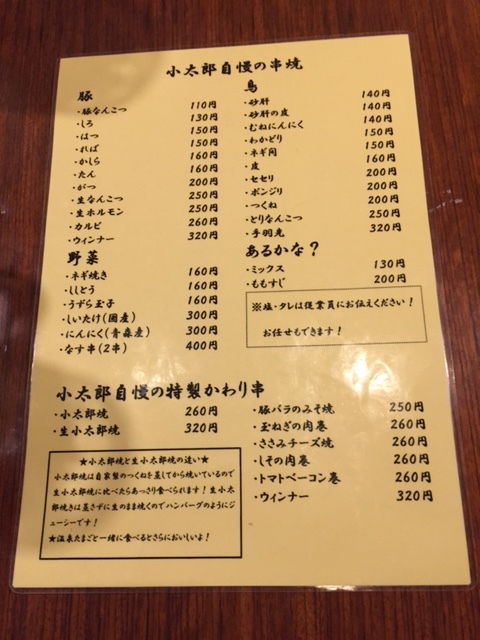 小太郎自慢の串焼
豚
・豚なんこつ 110円
・しろ 130円
・はつ 150円
・れば 150円
・かしら 160円
・たん 160円
・がつ 200円
・生なんこつ 250円
・生ホルモン 250円
・カルビ 260円
・ウィンナー 320円
野菜
・ネギ焼き 160円
・ししとう 160円
・うずら玉子 160円
・しいたけ(国産) 300円
・にんにく(青森産) 300円
・なす串(2串) 400円
鳥
・砂肝 140円
・砂肝の皮 140円
・むねにんにく 150円
・わかどり 150円
・ネギ間 150円
・皮 160円
・セセリ 200円
・ボンジリ 200円
・つくね 200円
・とりなんこつ 250円
・手羽先 320円
あるかな?
・ミックス 130円
・ももすじ 200円
※塩・タレは従業員にお伝えください!
お任せもできます!
小太郎自慢の特製かわり串
・小太郎焼 260円
・生小太郎焼 320円
★小太郎焼と生小太郎焼の違い★
小太郎焼は自家製のつくねを蒸してから焼いているので
生小太郎焼に比べたらあっさり食べられます!生小太
郎焼きは蒸さずに生のまま焼くのでハンバーグのようにジ
ューシーです!
★温泉たまごと一緒に食べるとさらにおいしいよ!
・豚バラのみそ焼 250円
・玉ねぎの肉巻 260円
・ささみチーズ焼 260円
・しその肉巻 260円
・トマトベーコン巻 260円
・ウィンナー 320円